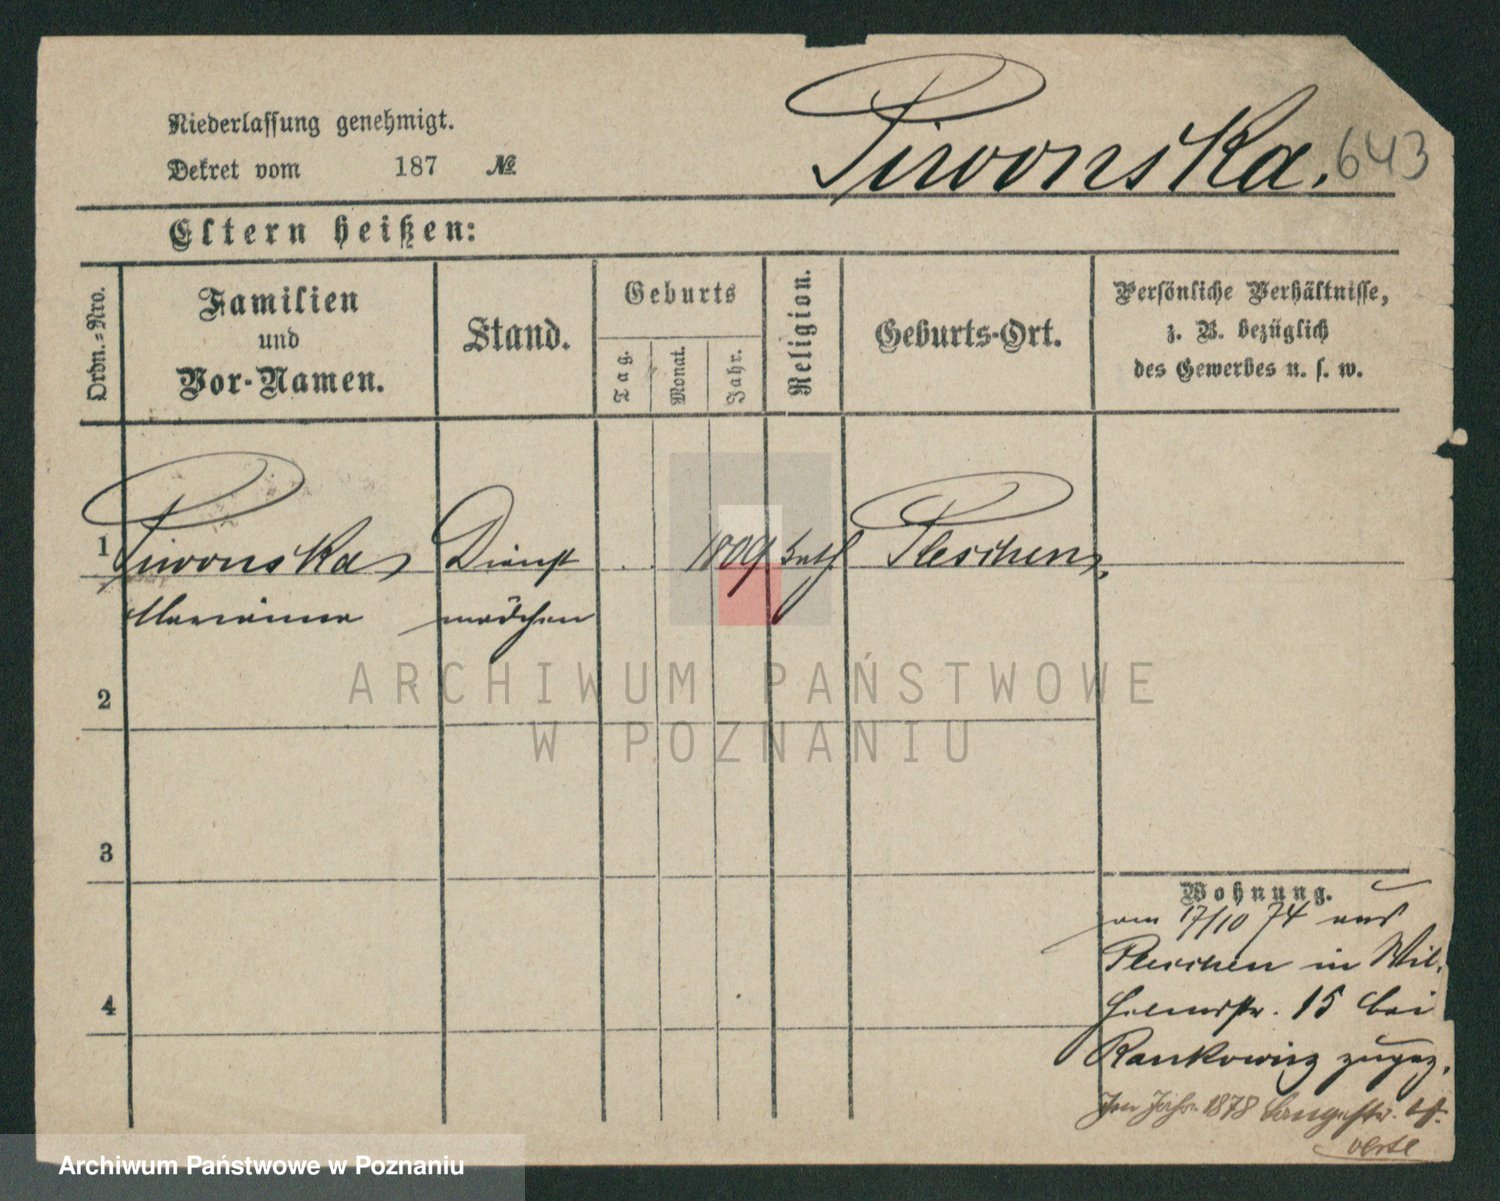 Niederlassung genehmigt.
Dekret vom 187 №
Piwonska. 643
Eltern heißen:
Ordn.-Nro.
Familien
und
Vor-Namen.
Stand.
Geburts
Tag.
Monat.
Jahr.
Religion.
Geburts-Ort.
Persönliche Verhältnisse,
z. B. bezüglich
des Gewerbes u. s. w.
1 Piwonska Dienst 1809 kath Pleschen
Marianna mädchen
2
3
4
Wohnung.
am 17/10 74 aus
Pleschen in Wil-
helmstr. 15 bei
Rankowicz zugez.
Im Jahre 1878 Langestr.
verte
ARCHIWUM PAŃSTWOWE
W POZNANIU
Archiwum Państwowe w Poznaniu